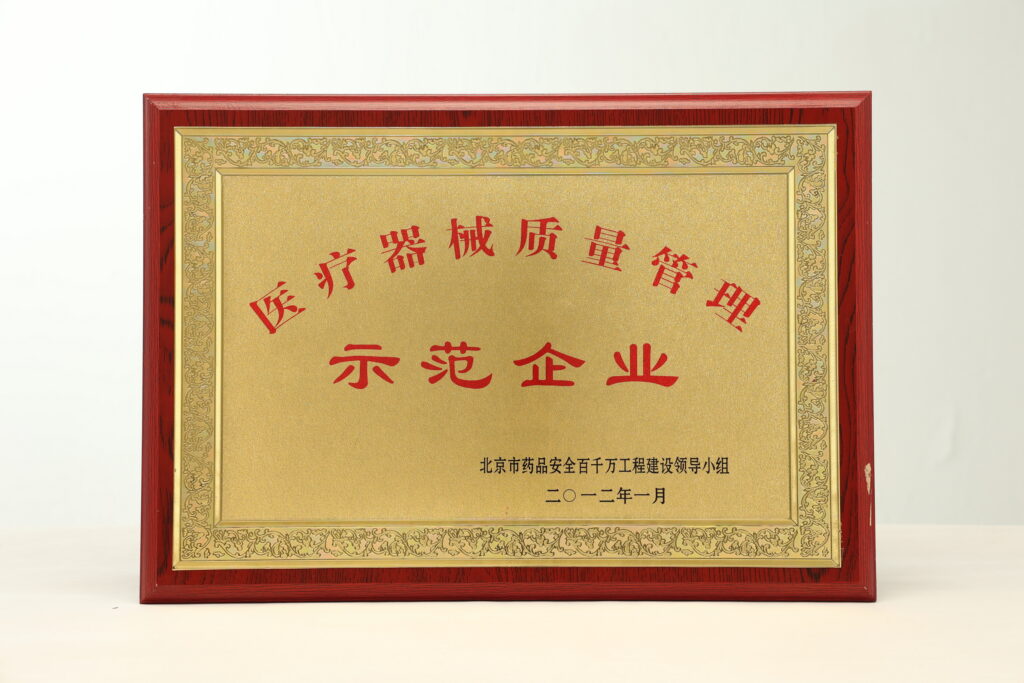 医疗器械质量管理
示范企业
北京市药品安全百千万工程建设领导小组
二〇一二年一月